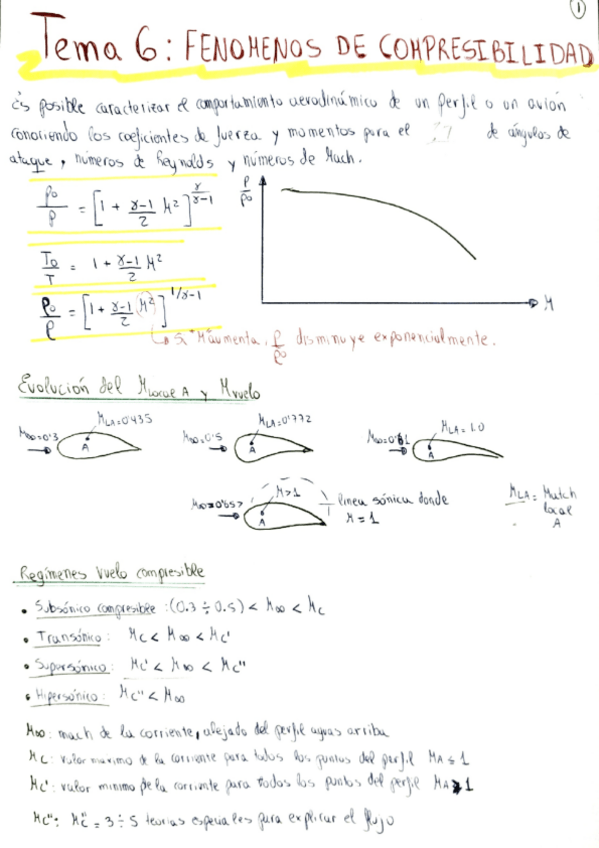 1
Tema 6: FENOMENOS DE COMPRESIBILIDAD
Es posible caracterizar el comportamiento aerodinámico de un perfil o un avión
conociendo los coeficientes de fuerza y momentos para el de ángulos de
ataque, números de Reynolds y números de Mach.
P₀/P = [1 + γ-1/2 M²]^γ/γ-1
T₀/T = 1 + γ-1/2 M²
ρ₀/ρ = [1 + γ-1/2 M²]^1/γ-1
ρ/ρ₀
M
Si "M" aumenta, ρ/ρ₀ disminuye exponencialmente.
Evolución del Mlocal A y Mvuelo
M∞=0'3
MLA=0'435
A
M∞=0'5
MLA=0'772
A
M∞=0'61
MLA=1.0
A
M∞=0'657
M>1
A
linea sónica donde
M=1
MLA = Match
local
A
Regímenes vuelo compresible
• Subsónico compresible: (0.3 ÷ 0.5) < M∞ < Mc
• Transónico: Mc < M∞ < Mc'
• Supersónico: Mc' < M∞ < Mc''
• Hipersónico: Mc'' < M∞
M∞: mach de la corriente, alejado del perfil aguas arriba
Mc: valor maximo de la corriente para todos los puntos del perfil MA ≤ 1
Mc': valor minimo de la corriente para todos los puntos del perfil MA ≥ 1
Mc'': Mc'' = 3 ÷ 5 teorias especiales para explicar el flujo